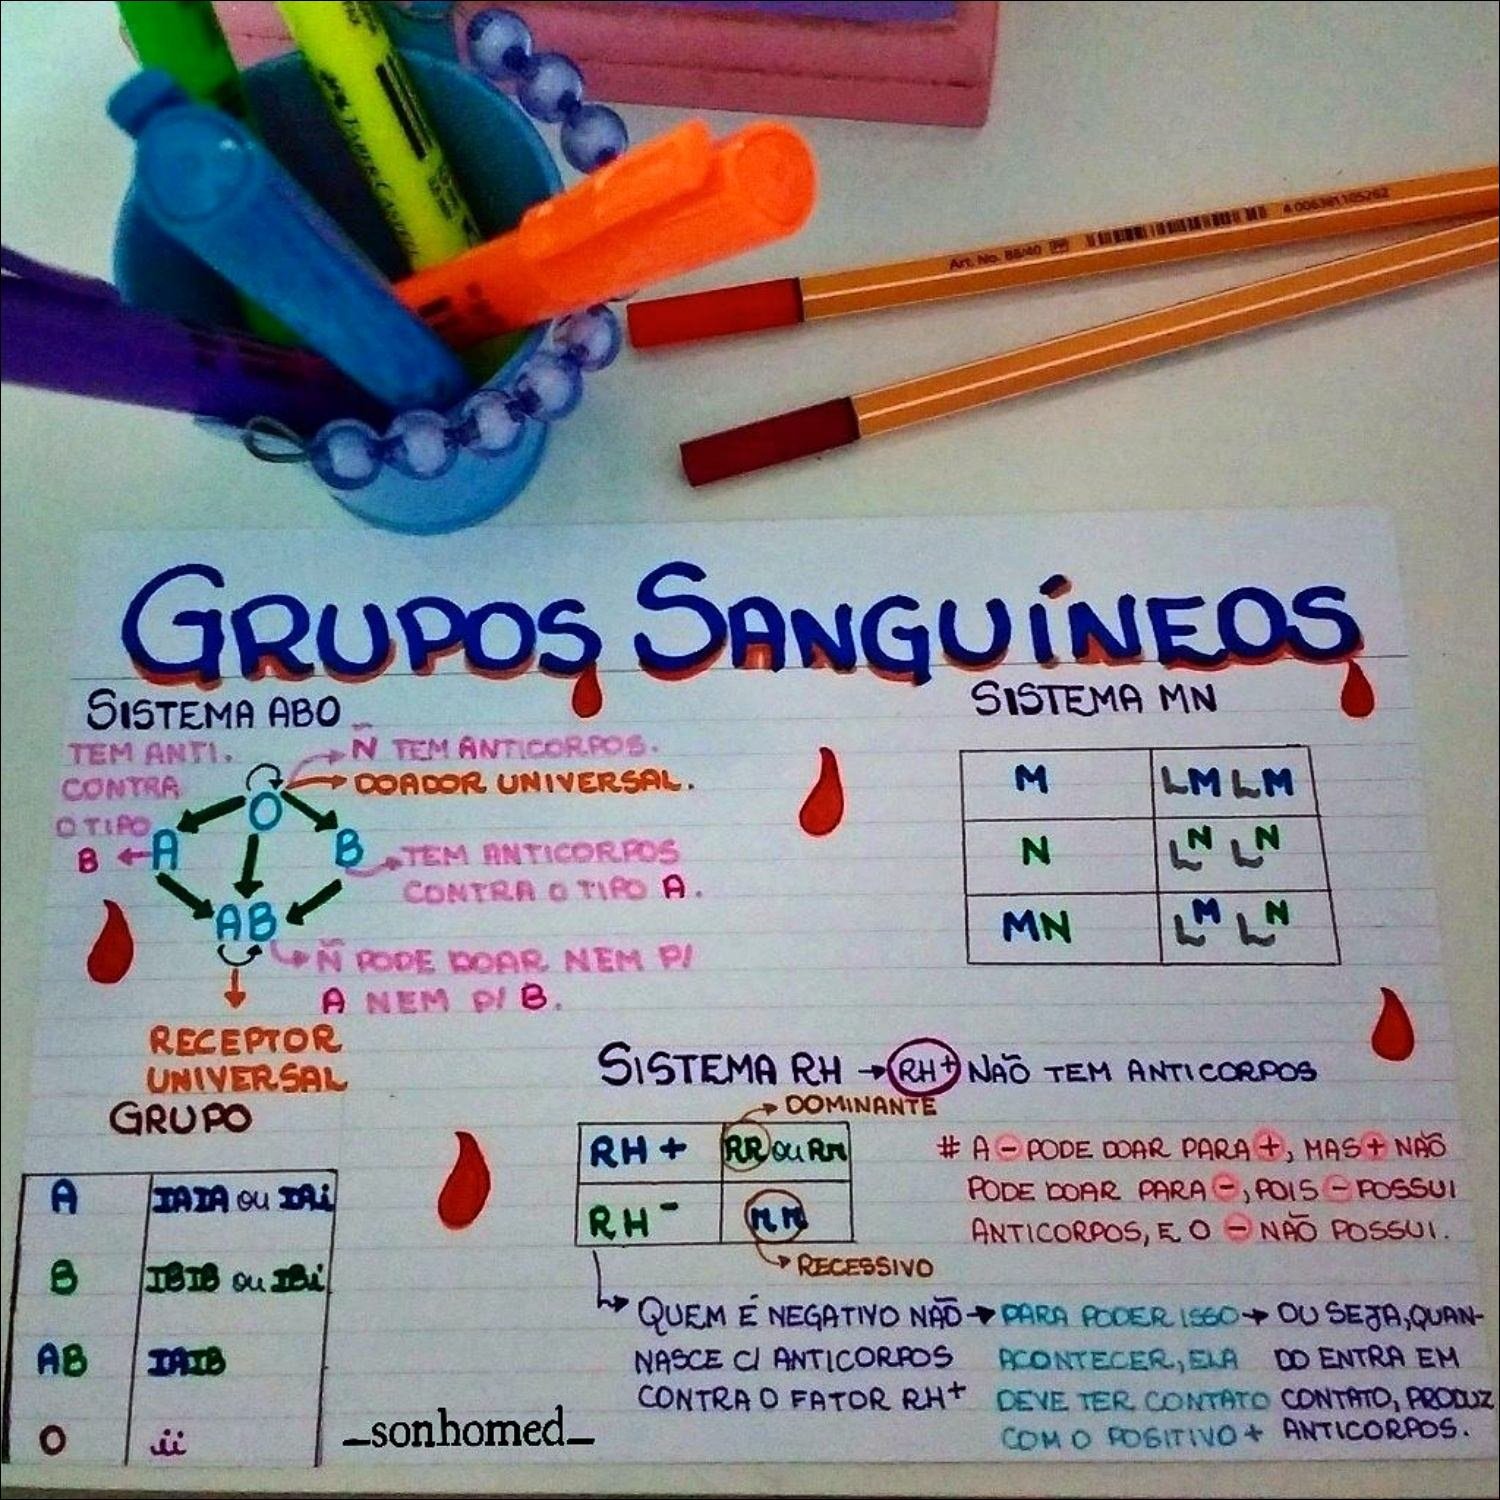 FABER-CASTELL
Art. No. 88/40
4 006381105262
GRUPOS SANGUÍNEOS
SISTEMA ABO
TEM ANTI.
CONTRA
O TIPO
B
Ñ TEM ANTICORPOS.
DOADOR UNIVERSAL.
O
A
B
AB
TEM ANTICORPOS
CONTRA O TIPO A.
Ñ PODE DOAR NEM P/
A NEM P/ B.
RECEPTOR
UNIVERSAL
SISTEMA MN
M LM LM
N LN LN
MN LM LN
GRUPO
A IAIA ou IAi
B IBIB ou IBi
AB IAIB
O ii
SISTEMA RH → RH+ NÃO TEM ANTICORPOS
DOMINANTE
RH + RR ou Rr
RH - rr
RECESSIVO
# A - PODE DOAR PARA +, MAS + NÃO
PODE DOAR PARA -, POIS - POSSUI
ANTICORPOS, E O - NÃO POSSUI.
QUEM É NEGATIVO NÃO →
NASCE C/ ANTICORPOS
CONTRA O FATOR RH+
PARA PODER ISSO →
ACONTECER, ELA
DEVE TER CONTATO
COM O POSITIVO +
OU SEJA, QUAN-
DO ENTRA EM
CONTATO, PRODUZ
ANTICORPOS.
_sonhomed_